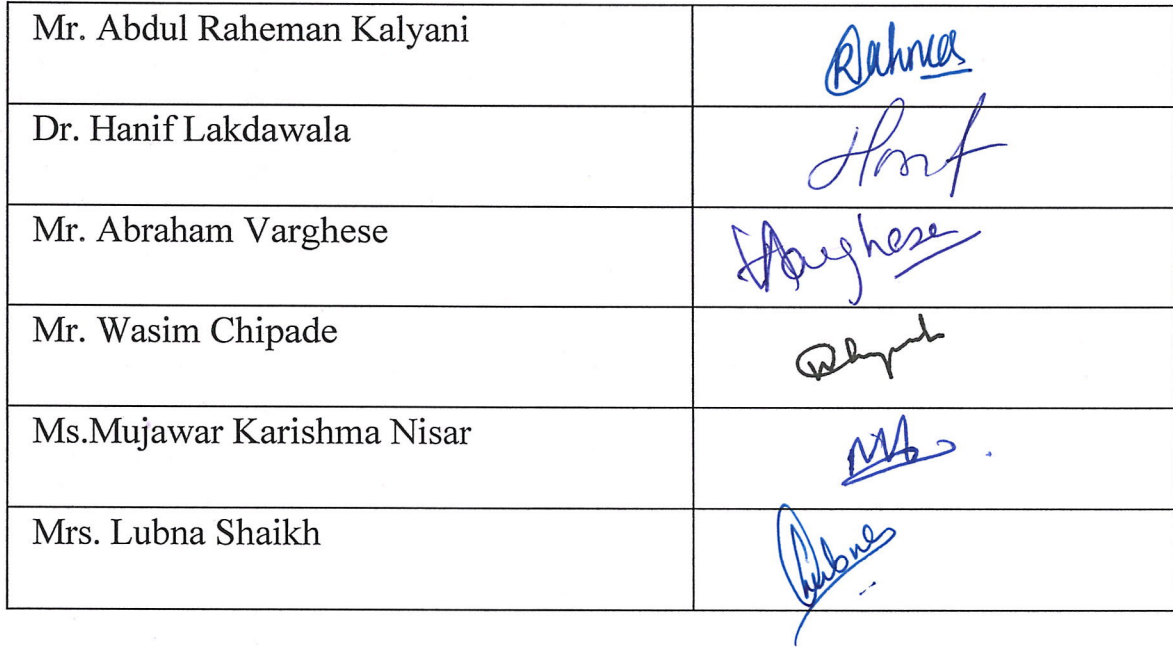 Mr. Abdul Raheman Kalyani
Dr. Hanif Lakdawala
Hanif
Mr. Abraham Varghese
Varghese
Mr. Wasim Chipade
Ms.Mujawar Karishma Nisar
Mrs. Lubna Shaikh
Lubna